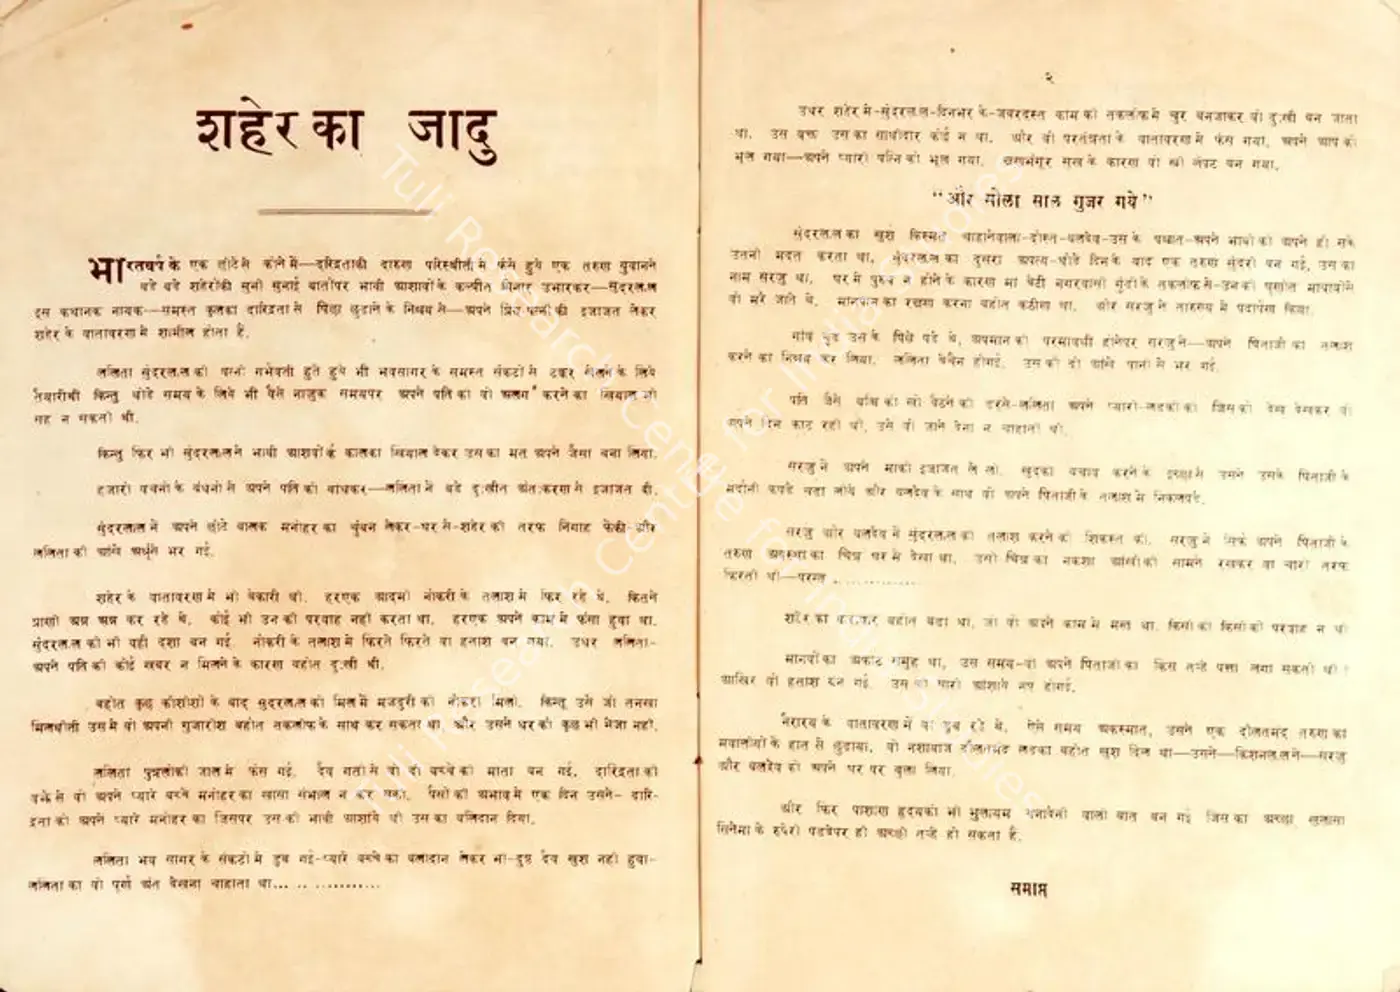 शहेर का जादु
भारतवर्ष के एक छोटेसे कोने में—दरिद्रताकी दारुण परिस्थीती में फंसे हुये एक तरुण युवानने
बडे बडे शहेरोंकी सुनी सुनाई बातोंपर भावी आशावों के कल्पीत मिनार उभारकर—सुंदरलाल
इस कथानक नायक—समस्त कुलका दारिद्रता से पिछा छुडाने के निश्चय से—अपने प्रिय पत्नी की इजाजत लेकर
शहेर के वातावरण में शामील होता है.
ललिता सुंदरलाल की पत्नी गर्भवती हुते हुये भी भवसागर के समस्त संकटों से टक्कर लेने के लिये
तैयारीथी किन्तु थोडे समय के लिये भी वैसे नाजुक समयपर अपने पति को वो अलग करने का खियाल भी
सह न सकती थी.
किन्तु फिर भी सुंदरलालने भावी आशावों के कालका खियाल देकर उस का मत अपने जैसा बना लिया.
हजारों वचनों के बंधनों से अपने पति को बांधकर—ललिता ने बडे दुःखीत अंतःकरण से इजाजत दी.
सुंदरलाल ने अपने छोटे बालक मनोहर का चुंबन लेकर-घर से-शहेर की तरफ निगाह फेकी-और
ललिता की आंखे अश्रूंसे भर गई.
शहेर के वातावरण में भी बेकारी थी. हरएक आदमी नोकरी के तलाश में फिर रहे थे. कितने
प्राणी अन्न अन्न कर रहे थे. कोई भी उन की परवाह नही करता था. हरएक अपने काम में फंसा हुवा था.
सुंदरलाल की भी यही दशा बन गई. नोकरी के तलाश में फिरते फिरते वो हताश बन गया. उधर ललिता-
अपने पति की कोई खबर न मिलने के कारण बहोत दुःखी थी.
बहोत कुछ कोशीशों के बाद सुंदरलाल को मिल में मजदुरी की नोकरी मिली. किन्तू उसे जो तनखा
मिलथीती उसमें वो अपनी गुजारीश बहोत तकलीफ के साथ कर सकता था. और उसने घर को कुछ भी भेजा नही.
ललिता पुन्नलोकी जाल में फंस गई. दैव गती से वो दो बच्चे की माता बन गई. दारिद्रता की
वजेसे वो अपने प्यारे बच्चे मनोहर का खासा संभाल न कर सकी. पैसों की अभाव में एक दिन उसने- दारि-
द्रता को अपने प्यारे मनोहर का जिसपर उस की भावी आशाये थी उस का बलिदान दिया.
ललिता भव सागर के संकटों में डुब गई-प्यारे बच्चे का बलीदान लेकर भी-दुष्ट दैव खुश नही हुवा-
ललिता का वो पूर्ण अंत देखना चाहाता था... .. ............
२
उधर शहेर में-सुंदरलाल-दिनभर के-जबरदस्त काम की तकलीफ में चुर बनजाकर वो दुःखी बन जाता
था. उस वक्त उस का साथीदार कोई न था. और वो परतंत्रता के वातावरण में फंस गया, अपने आप को
भूल गया—अपने प्यारी पत्नि को भूल गया. क्षणभंगूर सुख के कारण वो स्त्री लंपट बन गया.
"और सोला साल गुजर गये"
सुंदरलाल का खुश किस्मत चाहानेवाला-दोस्त-बलदेव-उस के पश्चात-अपने भाबी को अपने हो सके
उतनी मदत करता था. सुंदरलाल का दुसरा अपत्य-थोडे दिन के बाद एक तरुण सुंदरी बन गई, उस का
नाम सरजु था. घर में पुरुष न होने के कारण मां बेटी नगरवासी गुंडों के तकलीफ से-उनकी घृणीत भाषावों से
वो मरे जाते थे. मानधन का रक्षण करना बहोत कठीण था. और सरजु ने तारुण्य में पदार्पण किया.
गांव गुंड उन के पिछे पडे थे, अपमान की परमावधी होनेपर सरजु ने—अपने पिताजी का तलाश
करने का निश्चय कर लिया. ललिता बेचैन होगई. उस की दो आंखे पानी से भर गई.
पति जैसे बच्चि को खो बैठने की डरसे-ललिता अपने प्यारी-लडकी को जिस को देख देखकर वो
अपने दिन काट रही थी, उसे वो जाने देना न चाहाती थी.
सरजु ने अपने मा की इजाजत ले ली. खुदका बचाव करने के इच्छा से उसने उसके पिताजी के
मर्दानी कपडे चढा लीये और बलदेव के साथ वो अपने पिताजी के तलाश में निकलपडे.
सरजु और बलदेव ने सुंदरलाल का तलाश करने की शिकस्त की. सरजु ने सिर्फ अपने पिताजी के
तरुण अवस्था का चित्र घर में देखा था. उसी चित्र का नकशा आंखों के सामने रखकर वो चारों तरफ
फिरती थी—परन्तु ..............
शहेर का कारभार बहोत बडा था, जो वो अपने काम में मस्त था. किसी को किसी की परवाह न थी
मानवों का अफाट समूह था, उस समय-वो अपने पिताजी का किस तऱ्हे पत्ता लगा सकती थी
आखिर वो हताश बन गई. उस की सारी आशाये नष्ट होगई.
नैराश्य के वातावरण में वो डुब रहे थे. ऐसे समय अकस्मात, उसने एक दौलतमंद तरुण का
मवालीयों के हात से छुडाया. वो नशाबाज दौलतमंद लडका बहोत खुश दिल था—उसने—किशनलालने—सरजु
और बलदेव को अपने घर पर बुला लिया.
और फिर पाशाण हृदयको भी मुलायम बनादेनी वाली बात बन गई जिस का अच्छा खुलासा
सिनेमा के रुपेरी पडदेपर ही अच्छी तऱ्हे हो सकता है.
समाप्त